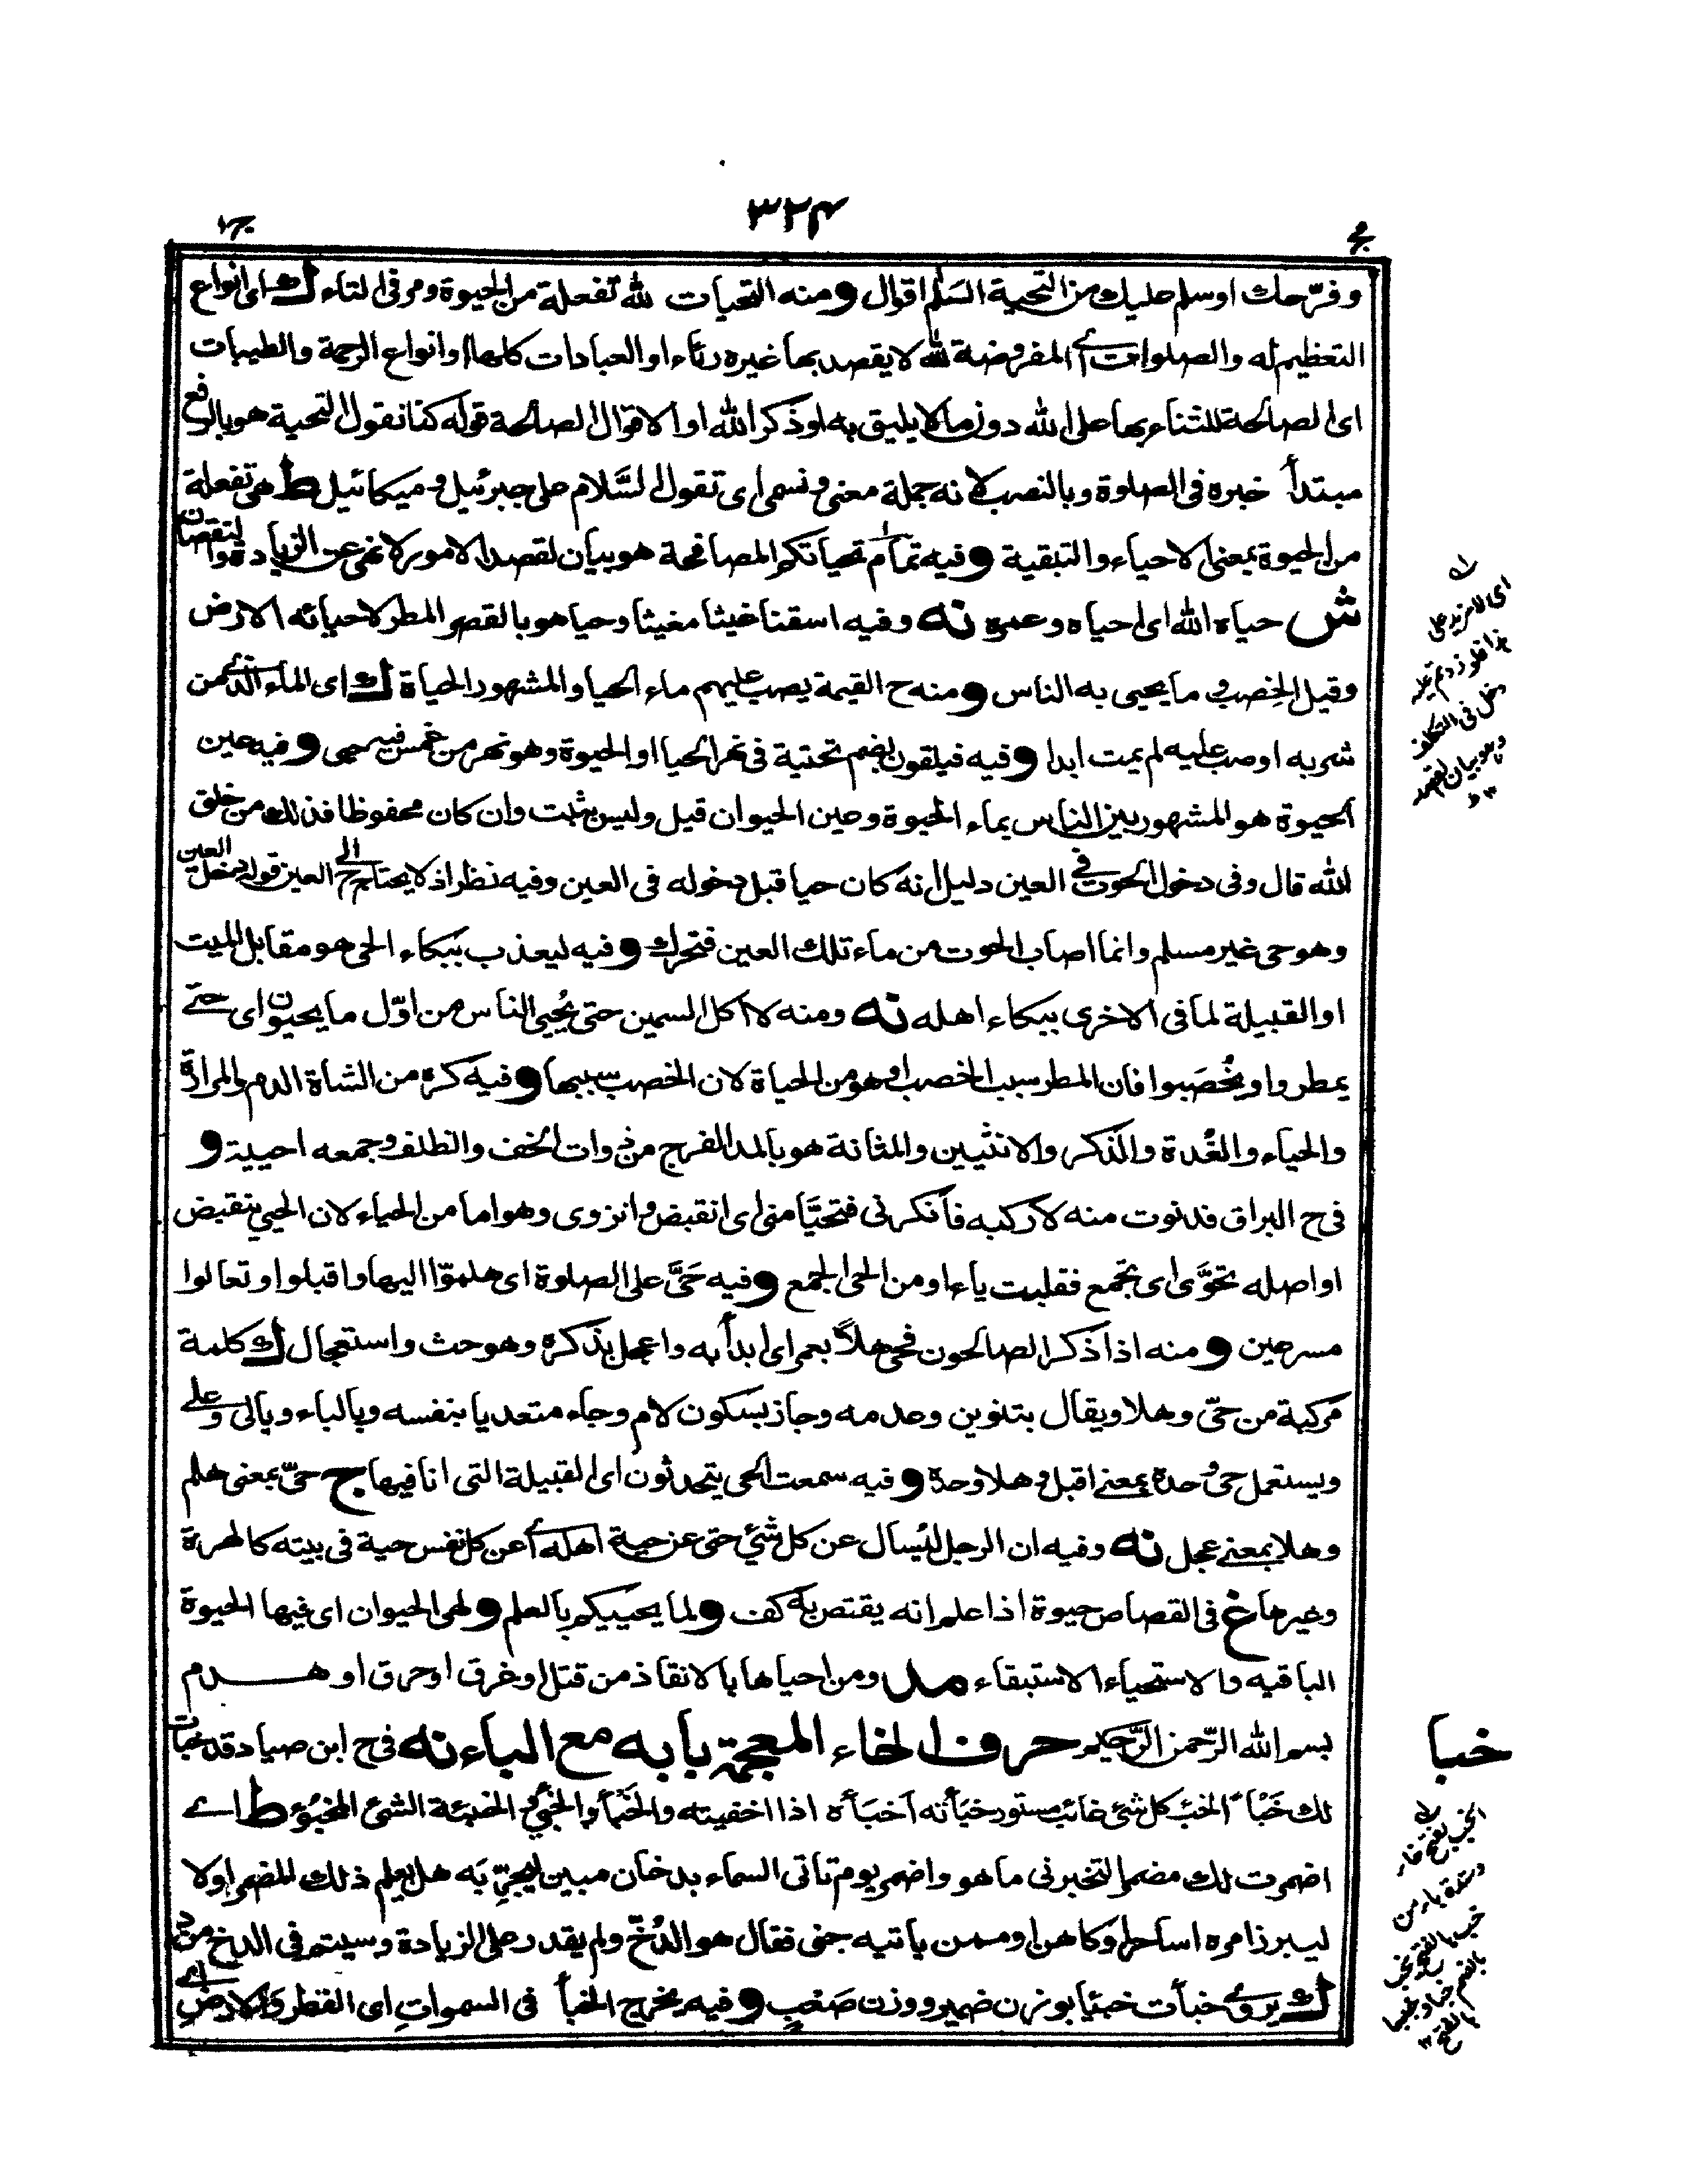 ٣٢٤
ج١
وفرّحك او سلم عليك من التحية السلم اقوال ومنه التحيات لله تفعلة من الحيوة ومر فى التاء ك اى انواع
التعظيم له والصلوات اى المفروضة لله لا يقصد بها غيره رئاء او العبادات كلها او انواع الرحمة والطيبات
اى الصالحة للثناء بها على الله دون ما لا يليق به او ذكر الله او الاقوال الصالحة قوله كنا نقول التحية هو بالرفع
مبتدأ خبره فى الصلوة وبالنصب لانه جملة معنى ونسمى اى تقول السّلام على جبرئيل وميكائيل ط هى تفعلة
من الحيوة بمعنى الاحياء والتبقية وفيه تمام تحياتكم المصافحة هو بيان لقصد الامور لا نهى عن الزيادة والنقصان
ش حياه الله اى احياه وعمره نه وفيه اسقنا غيثا مغيثا وحيا هو بالقصر المطر لاحيائه الارض
وقيل الخصب وما يحيى به الناس ومنه ح القيمة يصب عليهم ماء الحيا والمشهور الحياة ك اى الماء الذى من
شربه او صب عليه لم يمت ابدا وفيه فيلقون بضم تحتية فى نهر الحيا او الحيوة وهو نهر من غمس فيه حيى وفيه عين
الحيوة هو المشهور بين الناس بماء الحيوة وعين الحيوان قيل وليس بثابت وان كان محفوظا فذلك من خلق
الله قال وفى دخول الحوت فى العين دليل انه كان حيا قبل دخوله فى العين وفيه نظر اذ لا يحتاج الى العين قوله دخل العين
وهو حى غير مسلم وانما اصاب الحوت من ماء تلك العين فتحرك وفيه ليعذب ببكاء الحى هو مقابل الميت
او القبيلة لما فى الاخرى ببكاء اهله نه ومنه لا اكل السمين حتى يُحيى الناس من اوّل ما يحيون اى حتى
يمطروا ويُخصَبوا فان المطر سبب الخصب او هو من الحياة لان الخصب سببها وفيه كره من الشاة الدم والمرارة
والحياء والغُدة والذكر والانثيين والمثانة هو بالمد الفرج من ذوات الخف والظلف وجمعه احيية و
فى ح البراق فدنوت منه لاركبه فانكرنى فتحيَّا منى اى انقبض وانزوى وهو اما من الحياء لان الحيى ينقبض
او اصله تحوَّى اى تجمع فقلبت ياء او من الحى الجمع وفيه حَىَّ على الصلوة اى هلموّا اليها واقبلوا وتعالوا
مسرعين ومنه اذا ذكر الصالحون فحى هلاً بعمر اى ابدأ به واعجل بذكره وهو حث واستعجال ك كلمة
مركبة من حىّ وهلا ويقال بتنوين وعدمه وجاز بسكون لام وجاء متعديا بنفسه وبالباء وبالى وعلى
ويستعمل حى وحده بمعنى اقبل وهلا وحده وفيه سمعت الحى يتحدثون اى القبيلة التى انا فيها ج حىّ بمعنى هلم
وهلا بمعنى عجل نه وفيه ان الرجل ليُسأل عن كل شئ حتى عن حية اهله اى عن كل نفس حية فى بيته كالهرة
وغيرها غ فى القصاص حيوة اذا علم انه يقتص به كف ولما يحييكم بالعلم ولهى الحيوان اى فيها الحيوة
الباقيه والاستحياء الاستبقاء مد ومن احياها بالانقاذ من قتل او غرق او حرق او هدم
بسم الله الرّحمن الرّحيم حرف الخاء المعجمة بابه مع الباء نه فى ح ابن صياد قد خبأت
لك خَبْأ الخبئ كل شئ غائب مستور خبأته اخبَأه اذا اخفيته والخَبْأ والخبئ والخبيئة الشئ المخبُوْء ط اى
اضمرت لك مضمرا لتخبرنى ما هو واضمر يوم تاتى السماء بدخان مبين ليجرّبه هل يعلم ذلك المضمر او لا
ليبرز امره اساحر او كاهن او ممن ياتيه جنى فقال هو الدُخّ ولم يقدر على الزيادة وسيتم فى الدخ من د
ك يروى خبأت خبيئا بوزن ضمير ووزن صَعْب وفيه يخرج الخبأ فى السموات اى القطر والارض اى
اى لا مزيد على
هذا فلو زدتم عليه
دخل فى التكلف
وهو بيان لقصد
١٢ ط
خبا